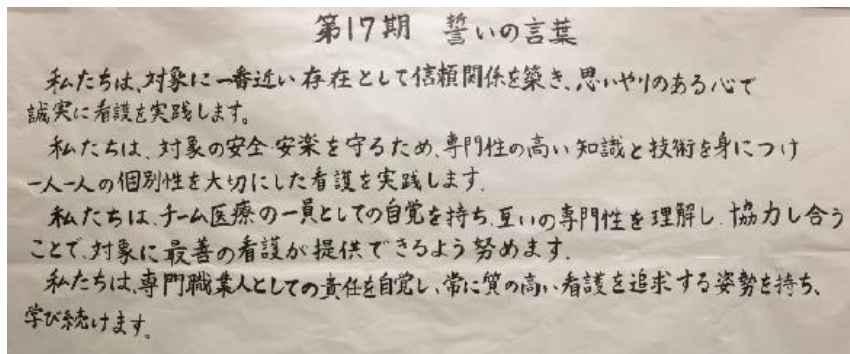 第17期 誓いの言葉
私たちは、対象に一番近い存在として信頼関係を築き、思いやりのある心で
誠実に看護を実践します。
私たちは、対象の安全・安楽を守るため、専門性の高い知識と技術を身につけ
一人一人の個別性を大切にした看護を実践します。
私たちは、チーム医療の一員としての自覚を持ち、互いの専門性を理解し、協力し合う
ことで、対象に最善の看護が提供できるよう努めます。
私たちは、専門職業人としての責任を自覚し、常に質の高い看護を追求する姿勢を持ち、
学び続けます。